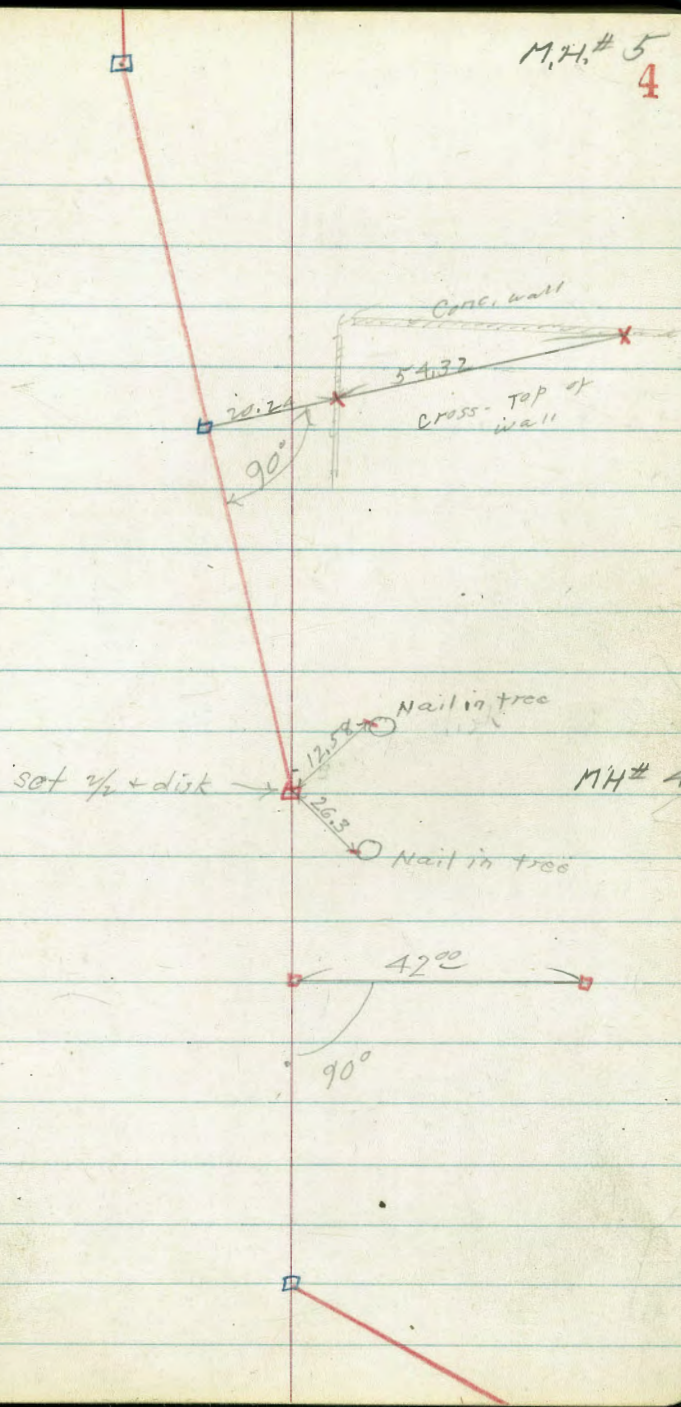 M.H.# 5
4
Conc. wall
54.32
20.24
Cross- Top of
wall
90°
Nail in tree
12.58
set 2/2 + disk
MH# 4
26.3
Nail in tree
42⁰⁰
90°